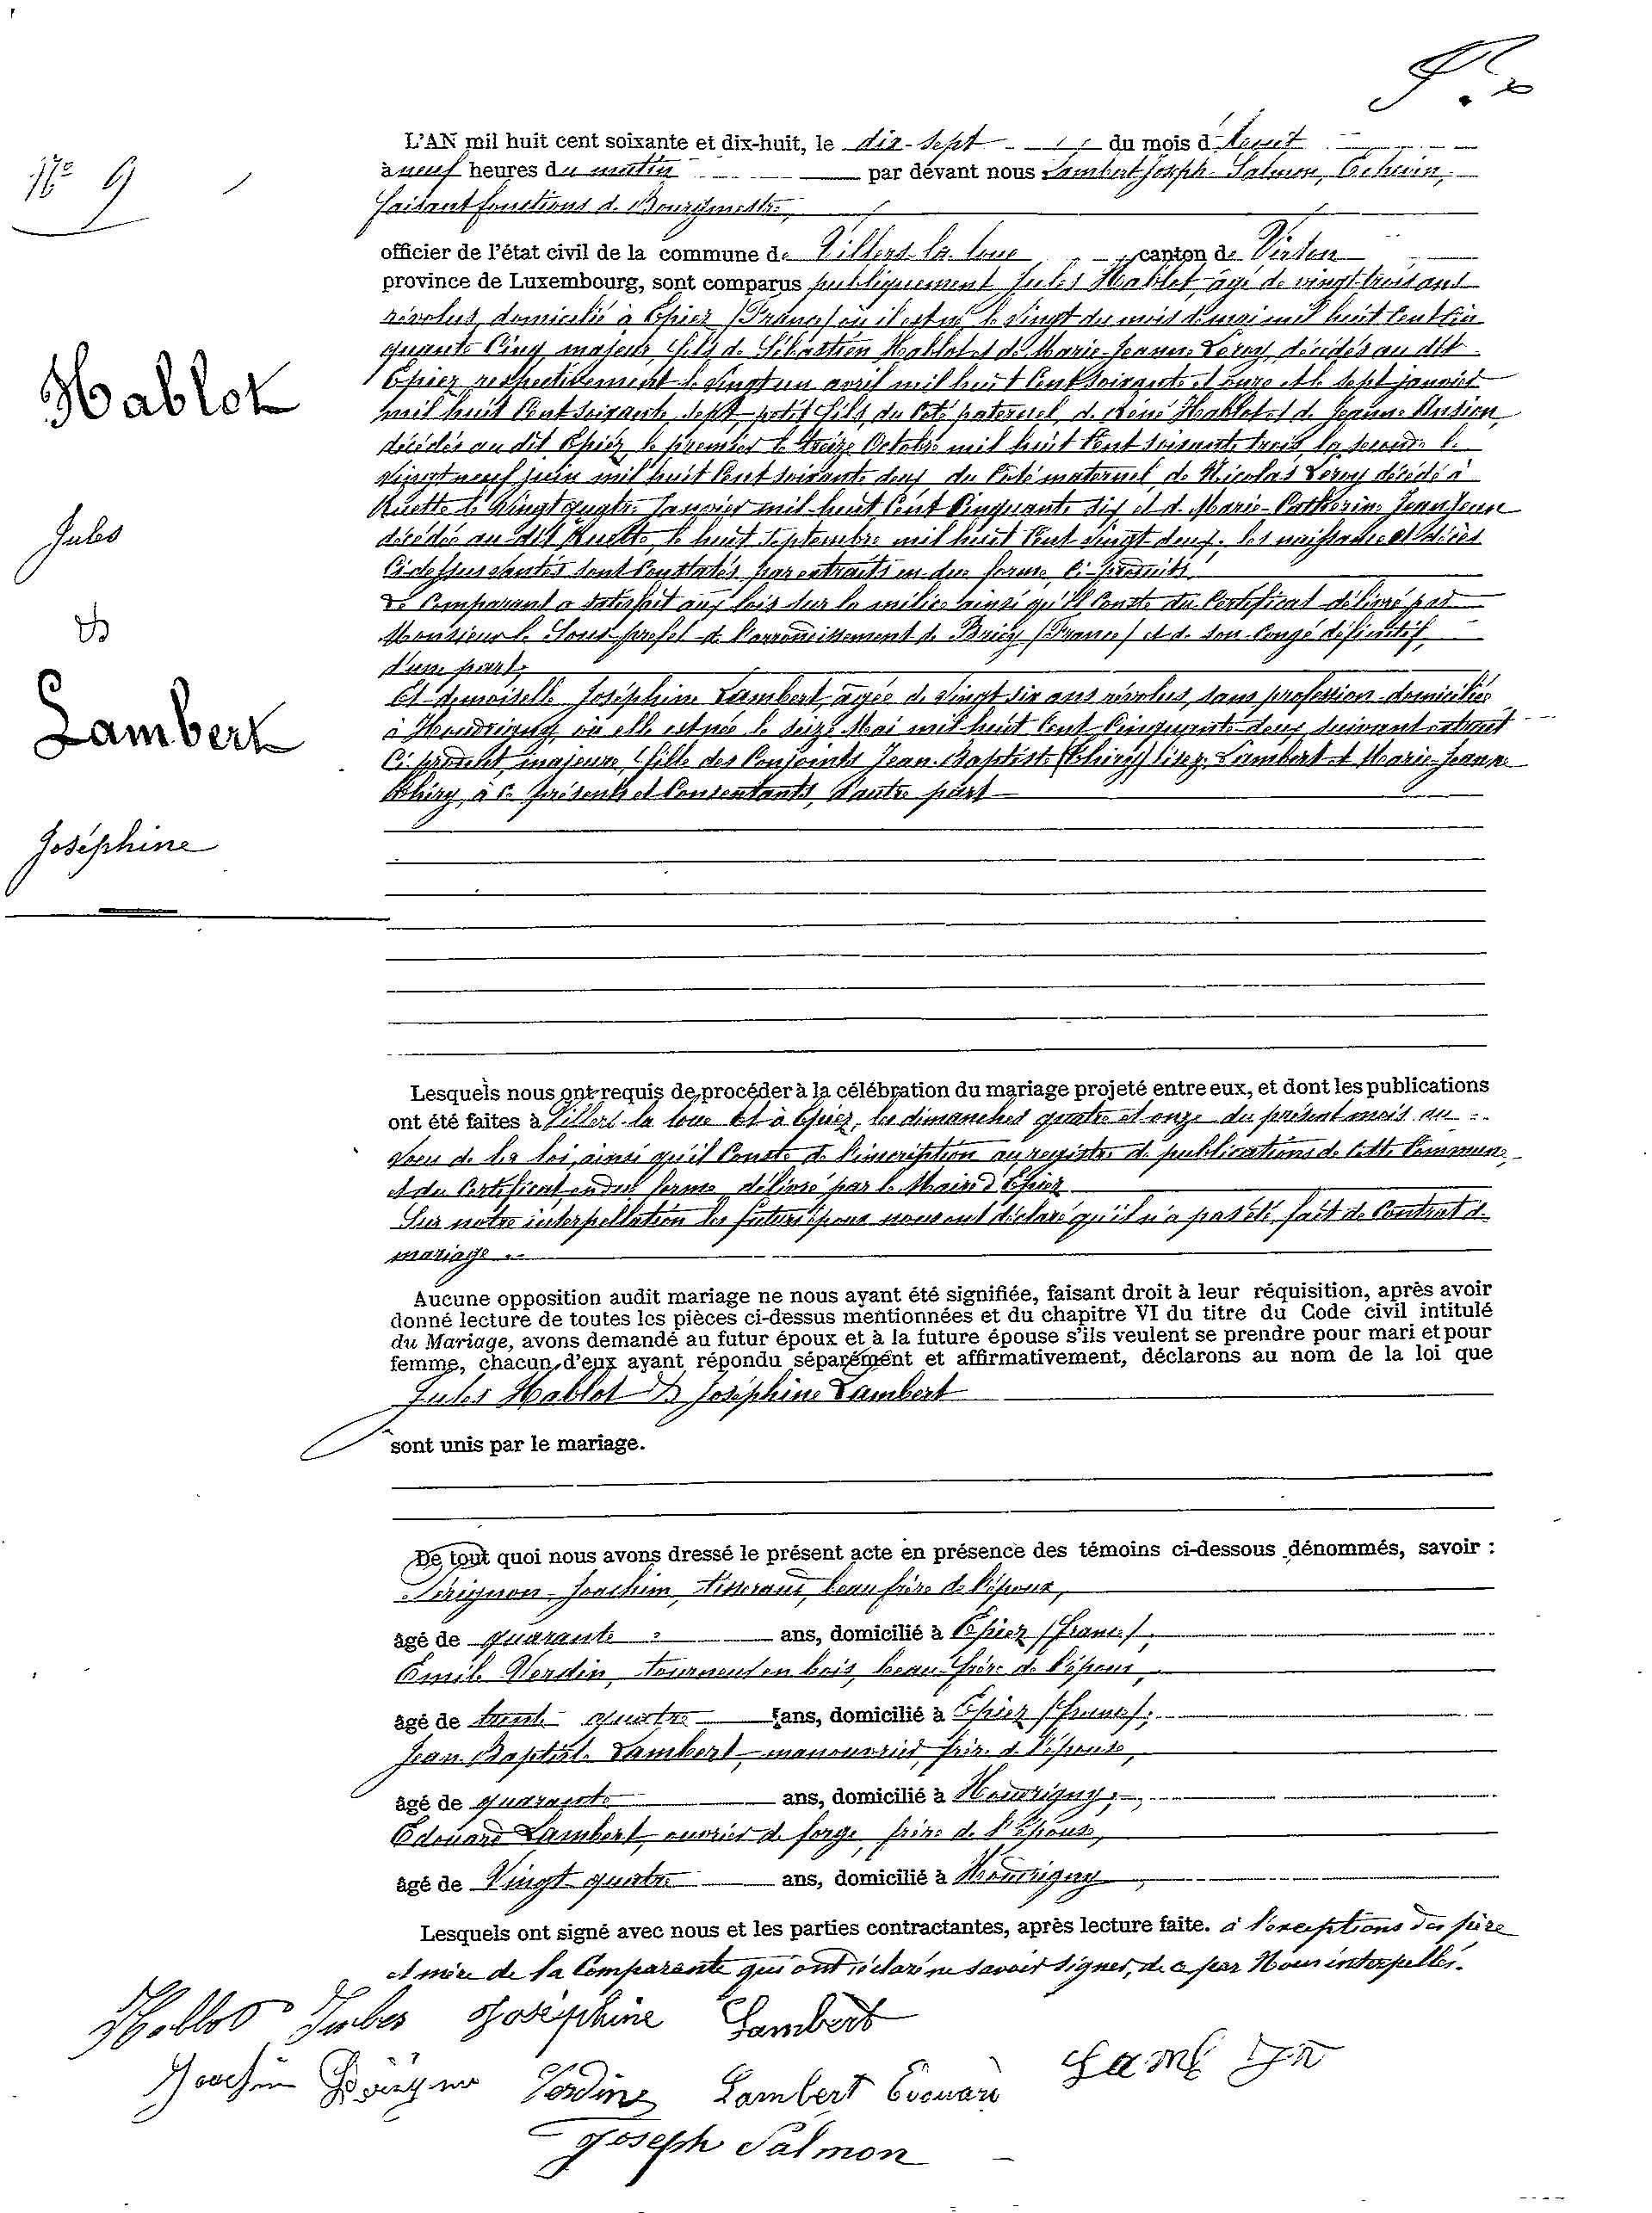 L'AN mil huit cent soixante et dix-huit, le dix-sept du mois d'Aout
N° 9
à neuf heures du matin par devant nous Lambert Joseph Salmon, Echevin,
faisant fonctions de Bourgmestre,
officier de l'état civil de la commune de Villers-la-loue canton de Virton
province de Luxembourg, sont comparus publiquement Jules Hablot, âgé de vingt trois ans
révolus, domicilié à Epiez (France) où il est né le vingt du mois de mai mil huit Cent Cin
quante Cinq, majeur, fils de Sébastien Hablot et de Marie-Jeanne Leroy, décédés au dit
Hablot
Epiez respectivement le vingt un avril mil huit Cent soixante et onze et le sept janvier
mil huit Cent soixante sept, petit fils, du Coté paternel, de Réné Hablot et de Jeanne Ansion,
décédés au dit Epiez, le premier le treize Octobre mil huit Cent soixante trois, la seconde le
vingt neuf juin mil huit Cent soixante deux, du Coté maternel, de Nicolas Leroy décédé à
Ruette le Vingt quatre Janvier mil huit Cent Cinquante six et de Marie-Catherine Jeanjean
Jules
décédée au dit Ruette, le huit Septembre mil huit Cent vingt deux. les naissance et décès
Ci-dessus sont Constatés par extraits en due forme, Ci-produits.
Le Comparant a satisfait aux lois sur la milice ainsi qu'il Conste du Certificat délivré par
&
Monsieur le Sous-préfet de l'arrondissement de Briey (France) et de son Congé définitif,
d'une part;
Et demoiselle Joséphine Lambert, âgée de Vingt six ans révolus, sans profession domiciliée
Lambert
à Houdrigny, où elle est née le seize Mai mil huit Cent Cinquante deux, suivant extrait
Ci-produit, majeure, fille des Conjoints Jean-Baptiste (Thiry) lisez Lambert et Marie-Jeanne
Thiry, à ce présents et Consentants, d'autre part
Joséphine
Lesquels nous ont requis de procéder à la célébration du mariage projeté entre eux, et dont les publications
ont été faites à Villers-la-loue et à Epiez, les dimanches quatre et onze du présent mois au
Voeu de la loi, ainsi qu'il Conste de l'inscription au registre de publications de Cette Commune
et du Certificat en due forme délivré par le Maire d'Epiez
Sur notre interpellation les futurs époux nous ont déclaré qu'il n'a pas été fait de Contrat de
mariage.
Aucune opposition audit mariage ne nous ayant été signifiée, faisant droit à leur réquisition, après avoir
donné lecture de toutes les pièces ci-dessus mentionnées et du chapitre VI du titre du Code civil intitulé
du Mariage, avons demandé au futur époux et à la future épouse s'ils veulent se prendre pour mari et pour
femme, chacun d'eux ayant répondu séparément et affirmativement, déclarons au nom de la loi que
Jules Hablot & Joséphine Lambert
sont unis par le mariage.
De tout quoi nous avons dressé le présent acte en présence des témoins ci-dessous dénommés, savoir :
Pérignon Joachim, tisserand, beau frère de l'époux,
âgé de quarante ans, domicilié à Epiez (France),
Emile Verdin, tourneur en bois, beau-frère de l'époux,
âgé de trente quatre ans, domicilié à Epiez (France);
Jean-Baptiste Lambert, manouvrier, frère de l'épouse,
âgé de quarante ans, domicilié à Houdrigny;
Edouard Lambert, ouvrier de forge, frère de l'Epouse,
âgé de Vingt quatre ans, domicilié à Houdrigny
Lesquels ont signé avec nous et les parties contractantes, après lecture faite. à l'exceptions des père
et mère de la Comparante qui ont déclaré ne savoir signer, de ce par Nous interpellés.
Hablot Jules Joséphine Lambert
Joachim Périgno Verdin Lambert Edouard
Joseph Salmon